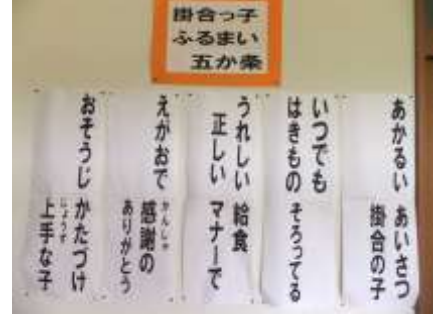 掛合っ子
ふるまい
五か条
あかるい　あいさつ
掛合の子
いつでも
はきもの　そろってる
うれしい　給食
正しい　マナーで
えがおで　感謝の
かんしゃ
ありがとう
おそうじ　かたづけ
上手な子
じょうず